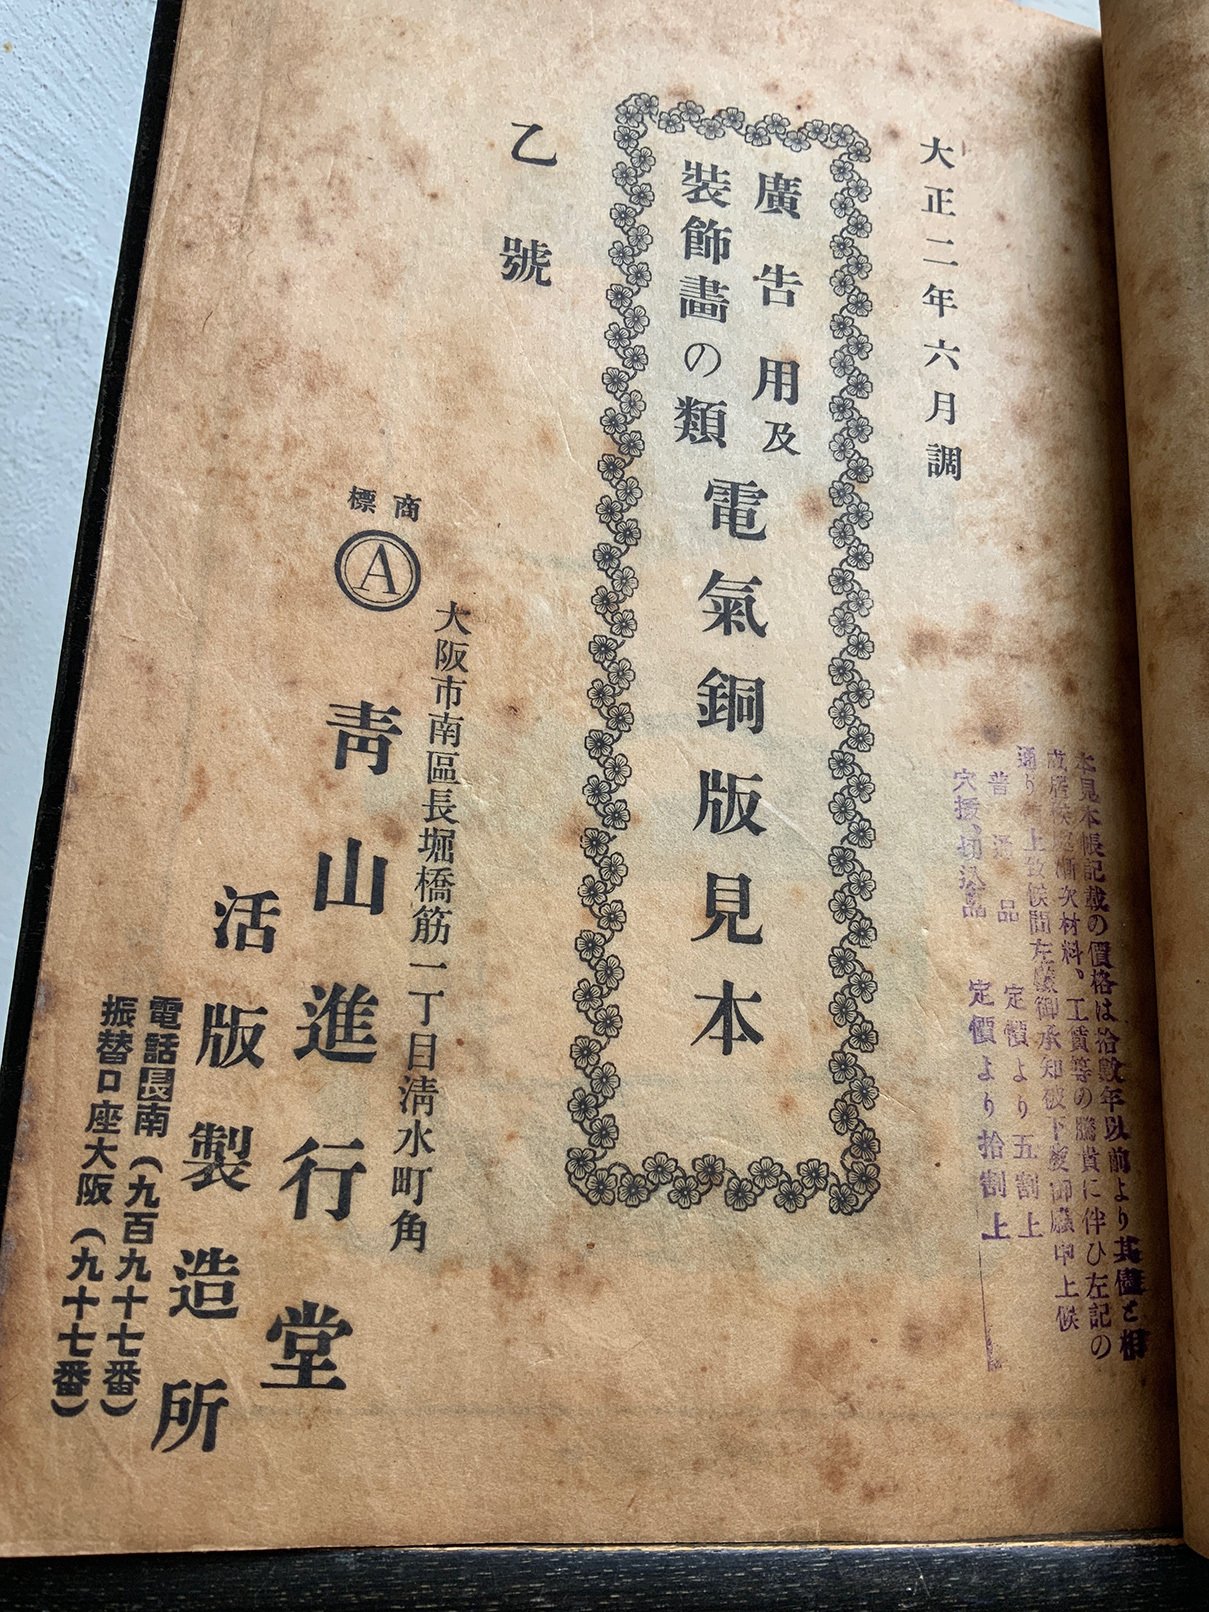 本見本帳記載の價格は拾數年以前より其儘と相
成居候處漸次材料、工賃等の騰貴に伴ひ左記の
通り 上致候間左樣御承知被下度御願申上候
普通品 定價より五割上
穴拔、切込品 定價より拾割上
大正二年六月調
廣告用及
裝飾畫の類
電氣銅版見本
乙號
大阪市南區長堀橋筋一丁目淸水町角
商標
A
靑山進行堂
活版製造所
電話長南(九百九十七番)
振替口座大阪(九十七番)